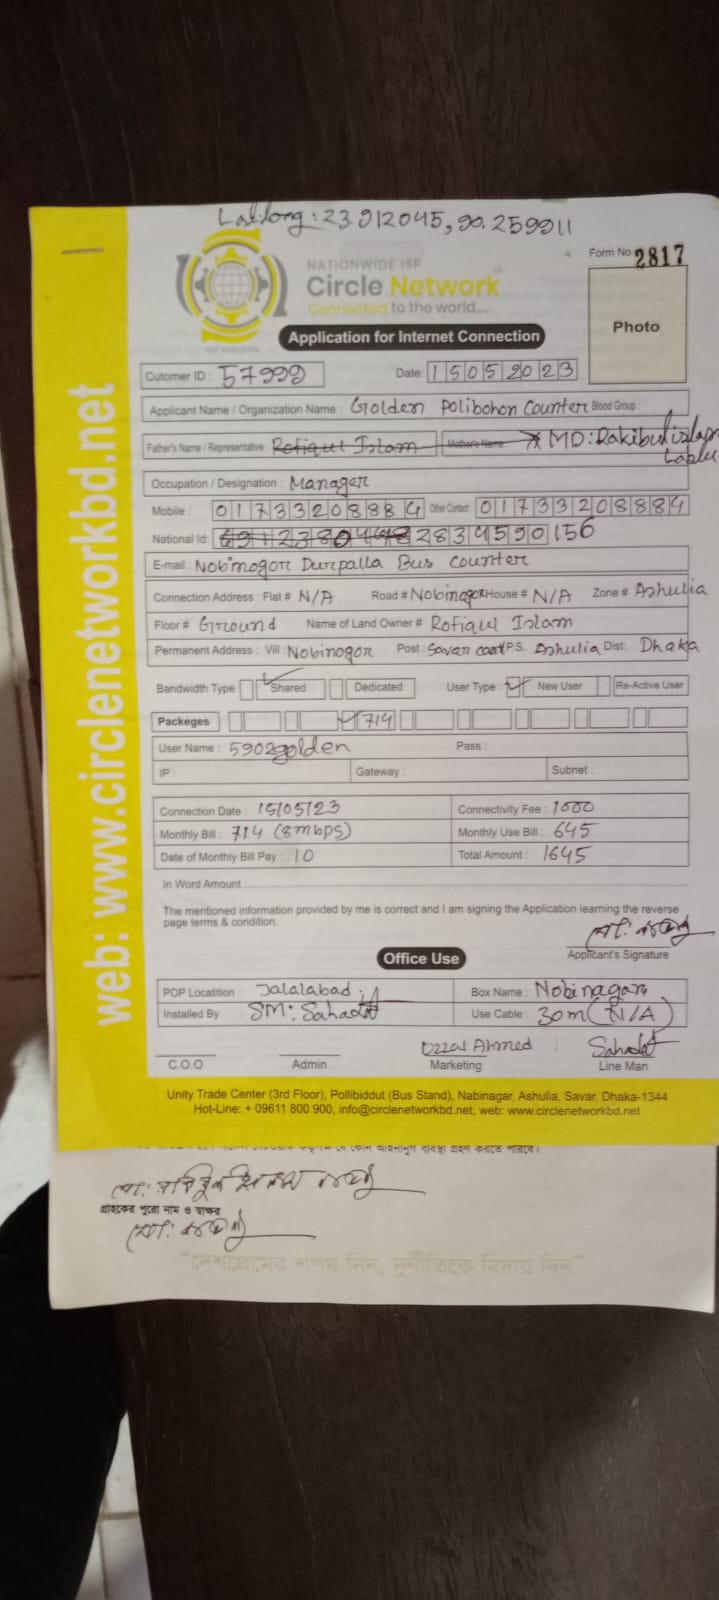 Lat:long : 23.912045, 90.259911
NATIONWIDE ISP
Circle Network
Connected to the world....
Form No 2817
Photo
Application for Internet Connection
Cutomer ID : 57999 Date: 15052023
Applicant Name / Organization Name : Golden Polibohon Counter Blood Group :
Father's Name / Representative Rofiqul Islam Mother's Name MD: Rakibul islam
Lablu
Occupation / Designation : Manager
Mobile : 01733208884 Other Contact: 01733208884
National Id: 2834590156
E-mail : Nobinogor Durpalla Bus Counter
Connection Address : Flat # N/A Road # Nobinogor House # N/A Zone # Ashulia
Floor # Ground Name of Land Owner # Rofiqul Islam
Permanent Address : Vill: Nobinogor Post : Savar cant P.S. Ashulia Dist: Dhaka
Bandwidth Type Shared Dedicated User Type : New User Re-Active User
Packeges 714
User Name : 5902golden Pass :
IP : Gateway : Subnet :
Connection Date : 15/05/23 Connectivity Fee : 1000
Monthly Bill : 714 (8mbps) Monthly Use Bill : 645
Date of Monthly Bill Pay : 10 Total Amount : 1645
In Word Amount :
The mentioned information provided by me is correct and I am signing the Application learning the reverse
page terms & condition.
Applicant's Signature
Office Use
POP Locatition : Jalalabad Box Name : Nobinagar
Installed By SM: Sahadat Use Cable : 30m (N/A)
Uzzal Ahmed Sahadat
C.O.O Admin Marketing Line Man
Unity Trade Center (3rd Floor), Pollibiddut (Bus Stand), Nabinagar, Ashulia, Savar, Dhaka-1344
Hot-Line: + 09611 800 900, info@circlenetworkbd.net, web: www.circlenetworkbd.net
web: www.circlenetworkbd.net
গ্রাহকের পুরো নাম ও স্বাক্ষর
"দেশপ্রেমের শপথ নিন, দুর্নীতিকে বিদায় দিন"